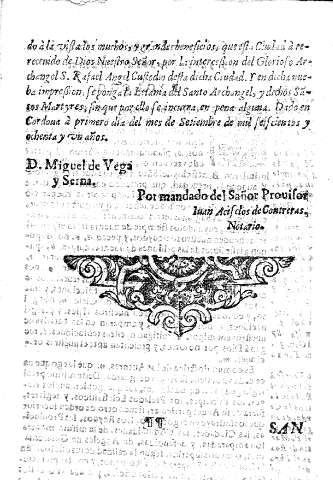 do à la vista los muchos, y grandes beneficios, que esta Ciudad à re-
cevido de Dios Nuestro Señor, por la intercession del Glorioso Ar-
changel S. Rafael Angel Custodio desta dicha Ciudad. Y en dicha nue-
ba impression, se ponga la Estampa del Santo Archangel, y dichos Sã-
tos Martyres, sin que por ello se incurra, en pena alguna. Dado en
Cordoua à primero dia del mes de Setiembre de mil seiscientos y
ochenta y vn años.
D. Miguel de Vega
y Serna.
Por mandado del Señor Prouisor
Iuan Acisclos de Contreras,
Notario.
¶¶ SAN